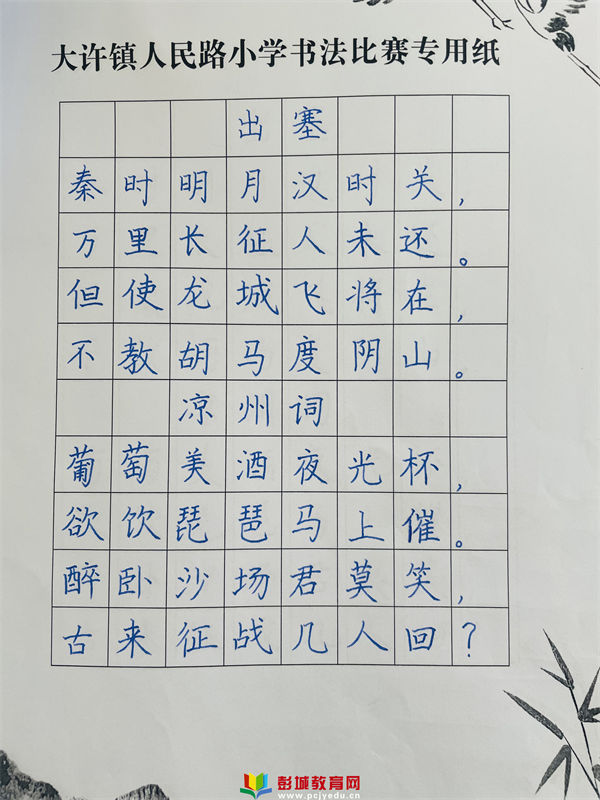 大许镇人民路小学书法比赛专用纸
出塞
秦时明月汉时关，
万里长征人未还。
但使龙城飞将在，
不教胡马度阴山。
凉州词
葡萄美酒夜光杯，
欲饮琵琶马上催。
醉卧沙场君莫笑，
古来征战几人回？
彭城教育网
www.pcjyedu.cn